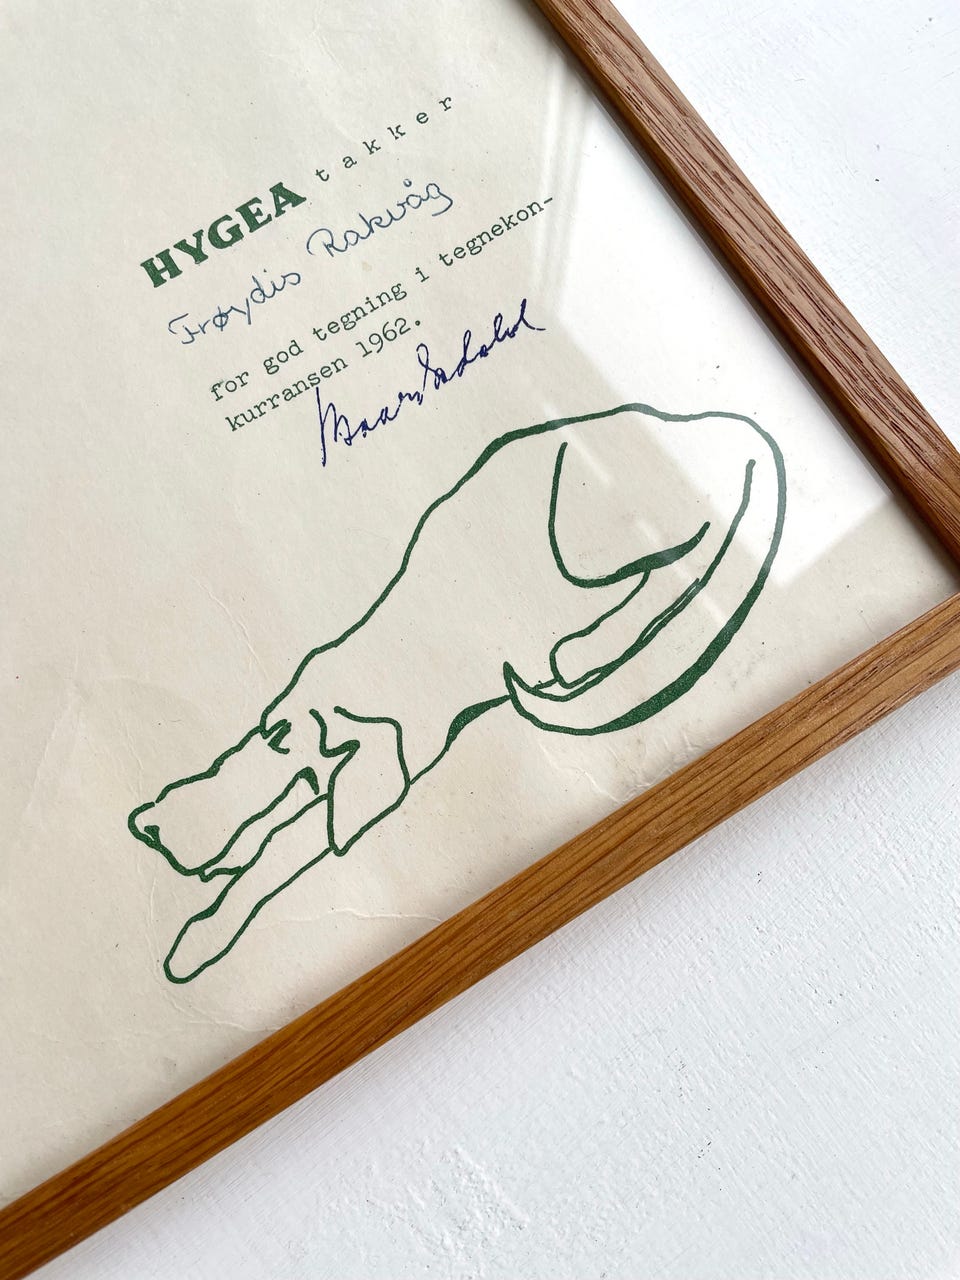 HYGEA takker
Frøydis Rakvåg
for god tegning i tegnekon-
kurransen 1962.